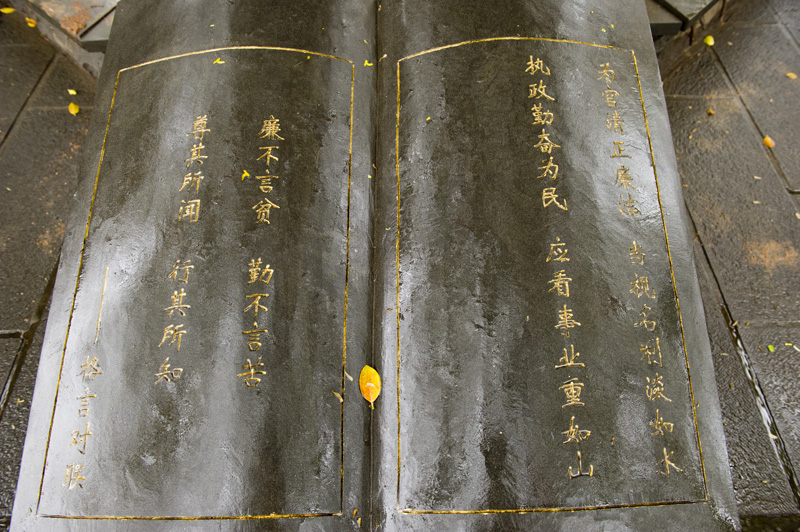 为官清正廉洁 当视名利淡如水
执政勤奋为民 应看事业重如山
廉不言贫 勤不言苦
尊其所闻 行其所知
格言对联